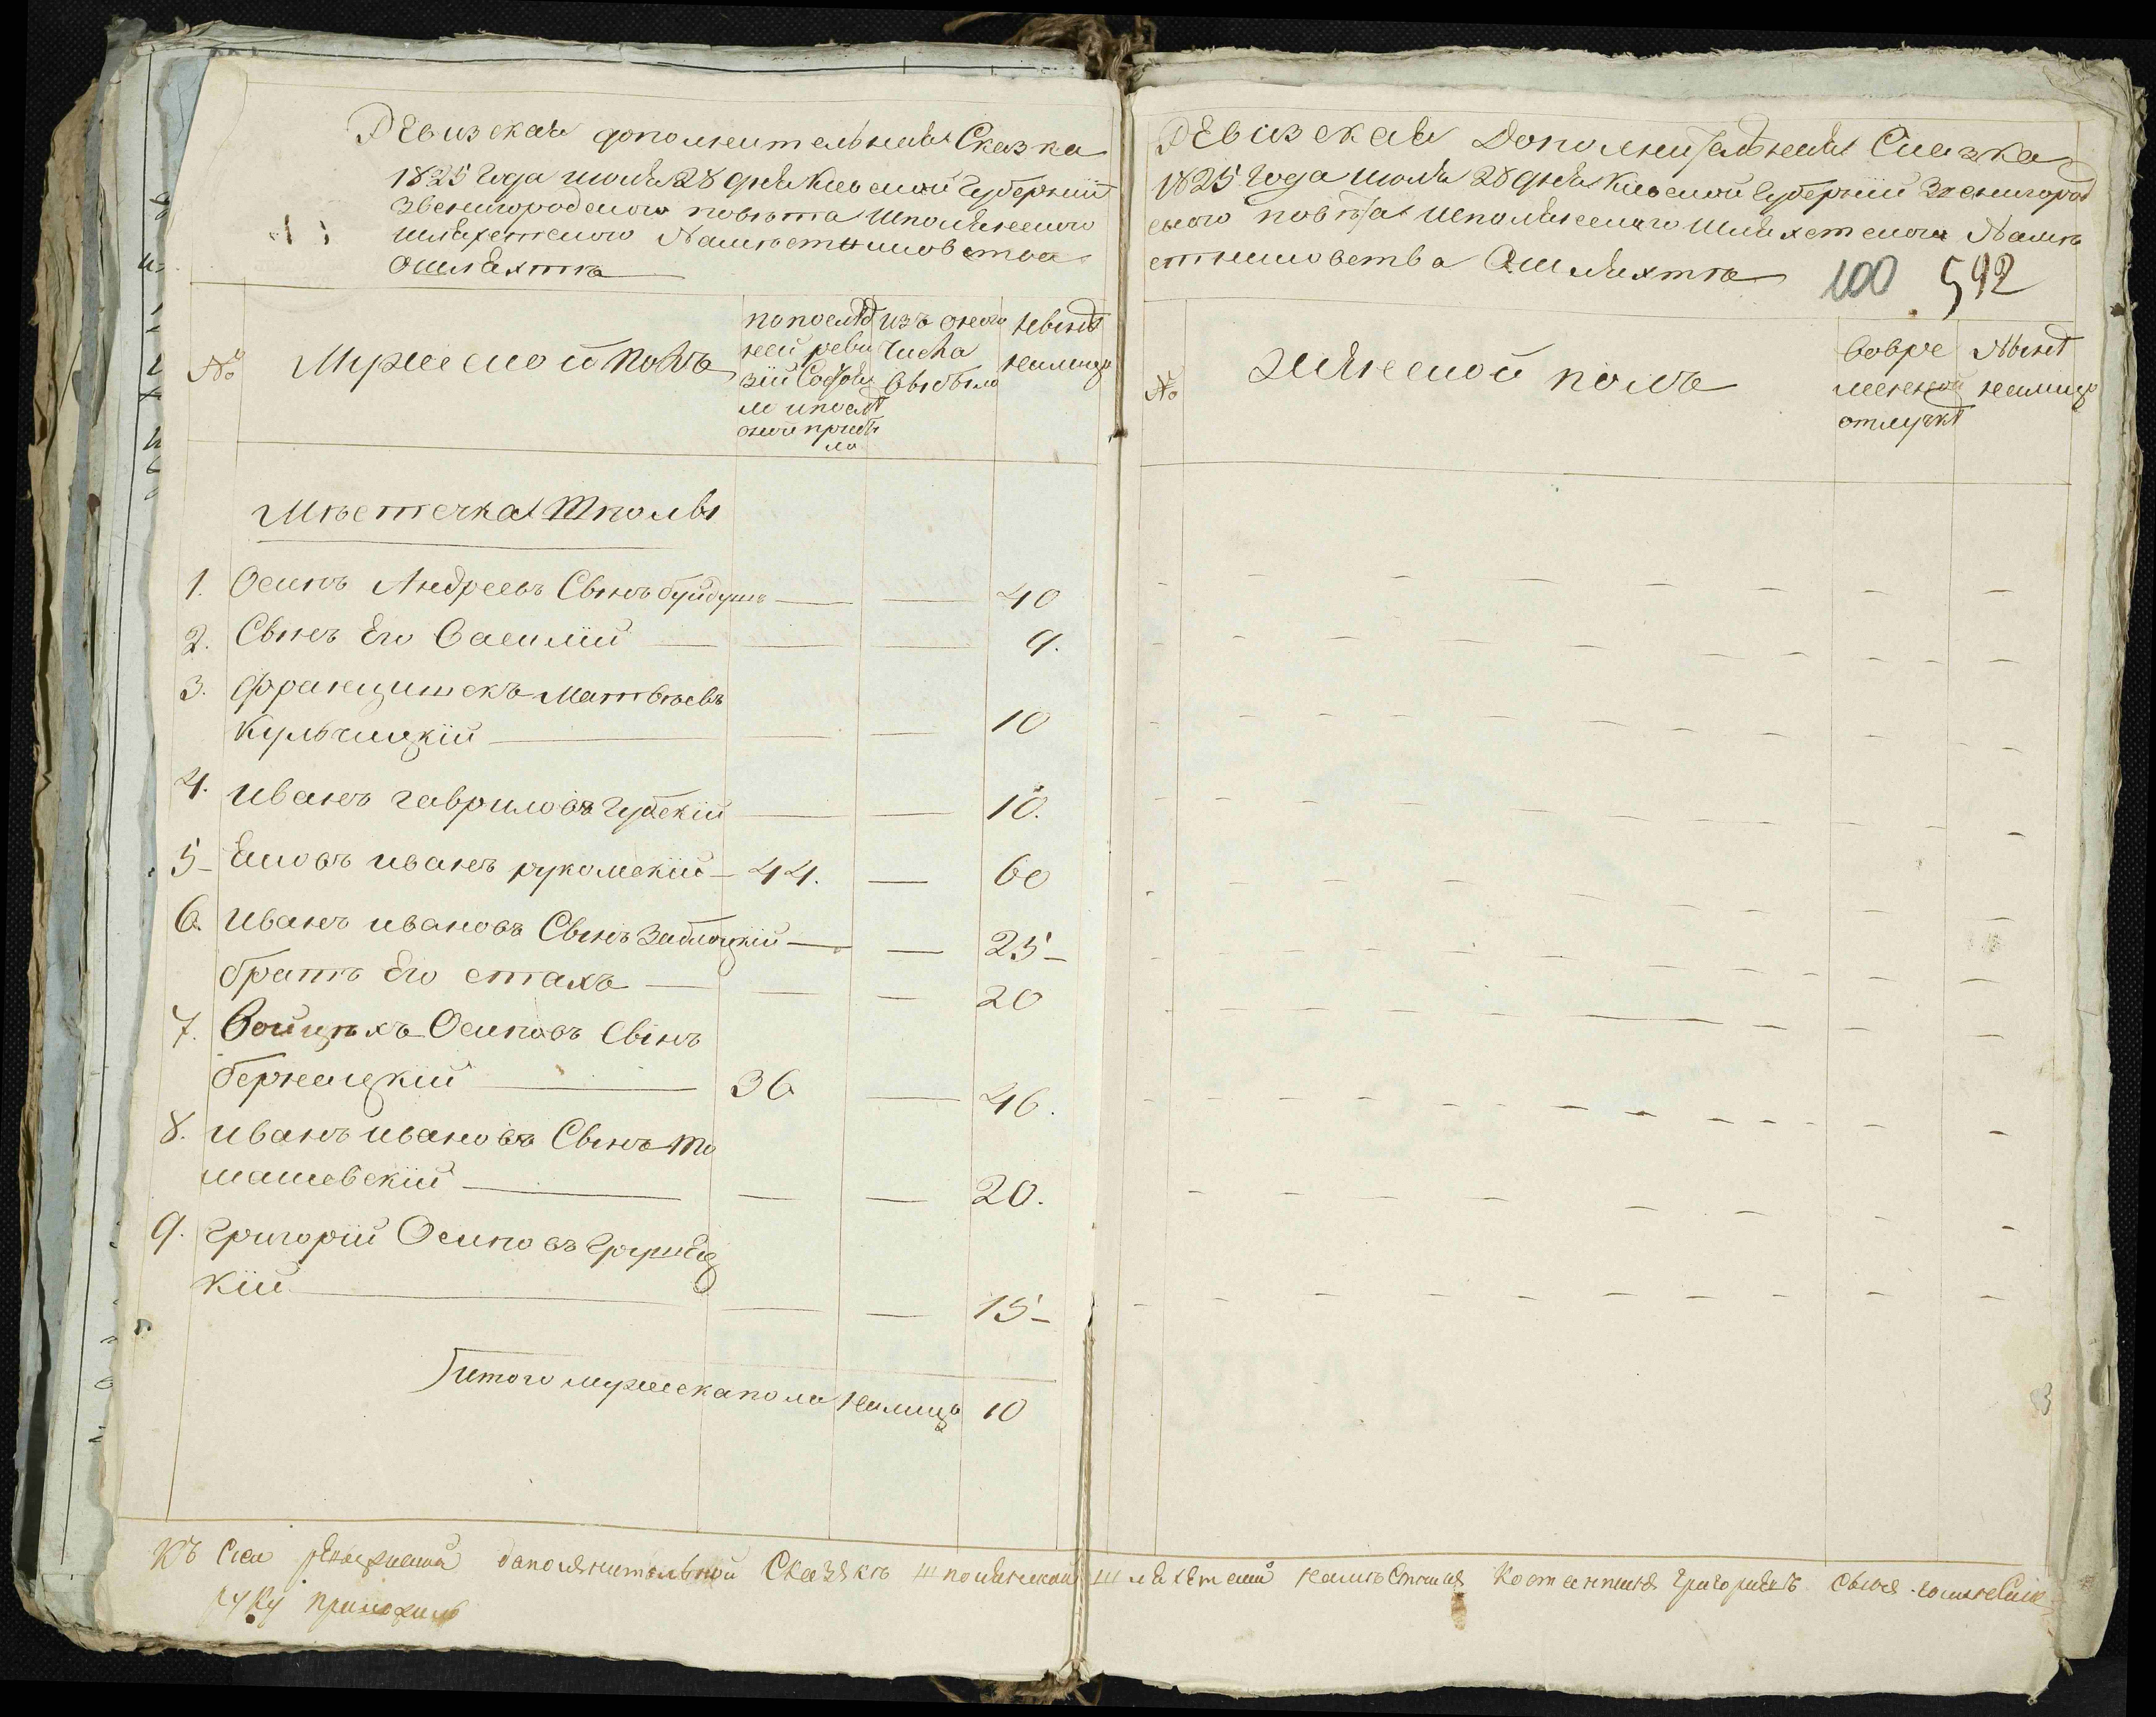 Ревизская дополнительная Сказка
1825 Года июля 28 дня Киевской Губернии
Звенигородского повѣта Шполянского
шляхетского Намѣстниковства
о шляхтѣ
№
Мужеской полъ
по послѣд
ней реви
зіи Состоя
ло и послѣ
оной прибы
ло
изъ оного
числа
выбыло
Нынѣ
налицо
Мѣстечка Шполы
1. Осипъ Андреевъ Сынъ — — 40
2. Сынъ Его Василій — — — 9.
3. Францишекъ Матвѣевъ
Кульчицкій — — — 10
4. Иванъ гавриловъ Губскій — — 10.
5 иванъ рукомскій 44. — 60
6. Иванъ ивановъ Сынъ Заблоцкій — — 25
братъ Его стахъ — — — 20
7. Войцѣхъ Осиповъ Сынъ
бернацкій — 36 — 46.
8. иванъ ивановъ Сынъ то
машевскій — — — 20.
9. григорій Осиповъ
кій — — — 15
Итого мужеска пола налицо 10
Ревизская Дополнительная Сказка
1825 Года Июля 28 дня Киевской Губерніи Звенигород
ского повѣта Шполянского Шляхетского Намѣ
стниковства О шляхтѣ
100 592
№
Женской полъ
во вре
менной
отлучкѣ
Нынѣ
налицо
Къ Сей дополнительной Сказкѣ шполянской шляхетской намѣстникъ
руку приложилъ